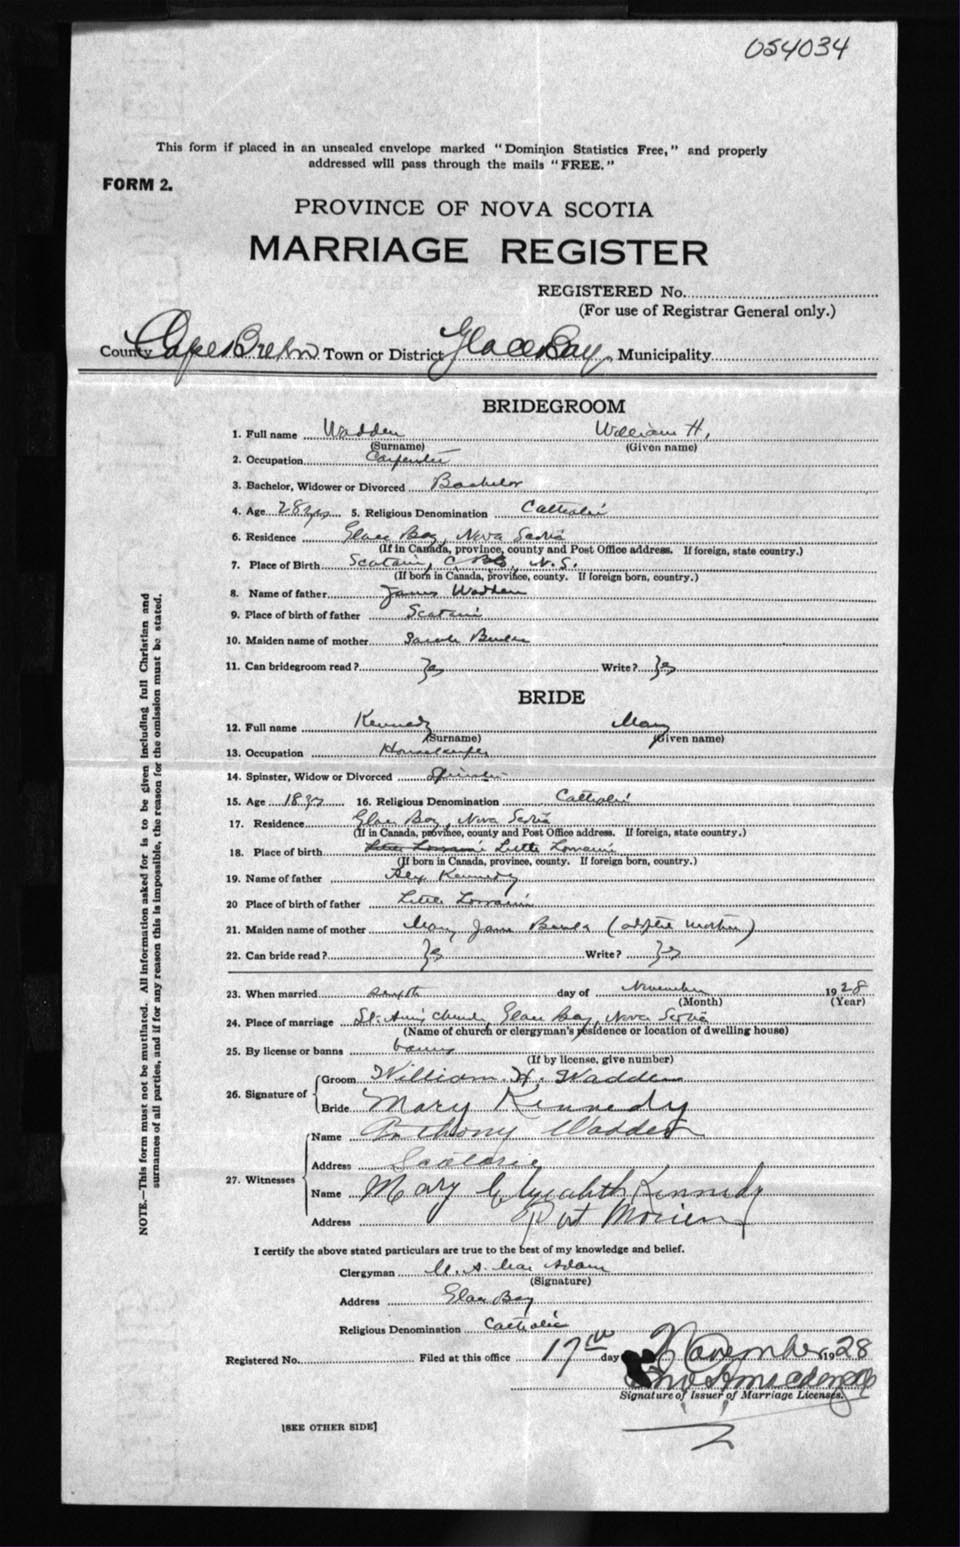 054034
This form if placed in an unsealed envelope marked "Dominion Statistics Free," and properly
addressed will pass through the mails "FREE."
FORM 2.
PROVINCE OF NOVA SCOTIA
MARRIAGE REGISTER
REGISTERED No.
(For use of Registrar General only.)
County Cape Breton Town or District Glace Bay Municipality
BRIDEGROOM
1. Full name Wadden William H.
(Surname) (Given name)
2. Occupation Carpenter
3. Bachelor, Widower or Divorced Bachelor
4. Age 28 yrs 5. Religious Denomination Catholic
6. Residence Glace Bay, Nova Scotia
(If in Canada, province, county and Post Office address. If foreign, state country.)
7. Place of Birth Scatari, C.B., N.S.
(If born in Canada, province, county. If foreign born, country.)
8. Name of father James Wadden
9. Place of birth of father Scatari
10. Maiden name of mother Sarah
11. Can bridegroom read? Yes Write? Yes
BRIDE
12. Full name Kennedy Mary
(Surname) (Given name)
13. Occupation Housekeeper
14. Spinster, Widow or Divorced Spinster
15. Age 18 yrs 16. Religious Denomination Catholic
17. Residence Glace Bay, Nova Scotia
(If in Canada, province, county and Post Office address. If foreign, state country.)
18. Place of birth Little Lorraine
(If born in Canada, province, county. If foreign born, country.)
19. Name of father Alex Kennedy
20 Place of birth of father Little Lorraine
21. Maiden name of mother Mary Jane
22. Can bride read? Yes Write? Yes
23. When married day of November 1928
(Month) (Year)
24. Place of marriage St. Ann's Church, Glace Bay, Nova Scotia
(Name of church or clergyman's residence or location of dwelling house)
25. By license or banns banns
(If by license, give number)
26. Signature of Groom William H. Wadden
Bride Mary Kennedy
27. Witnesses
Name Anthony Wadden
Address Scatarie
Name Mary Elizabeth Kennedy
Address Port Morien
I certify the above stated particulars are true to the best of my knowledge and belief.
Clergyman M. A. MacAdam
(Signature)
Address Glace Bay
Religious Denomination Catholic
Registered No. Filed at this office 17th day November 1928
Signature of Issuer of Marriage Licenses.
[SEE OTHER SIDE]
NOTE.—This form must not be mutilated. All information asked for is to be given including full Christian and
surnames of all parties, and if for any reason this is impossible, the reason for the omission must be stated.